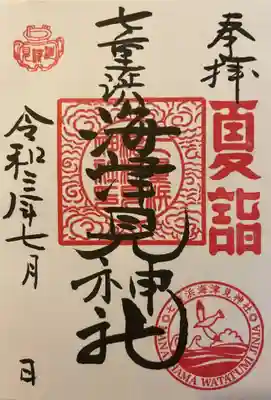 奉拝
夏詣
七重浜海津見神社
七重浜海津見神社
NANAEHAMA WATATUMI JINJA
令和三年七月 日